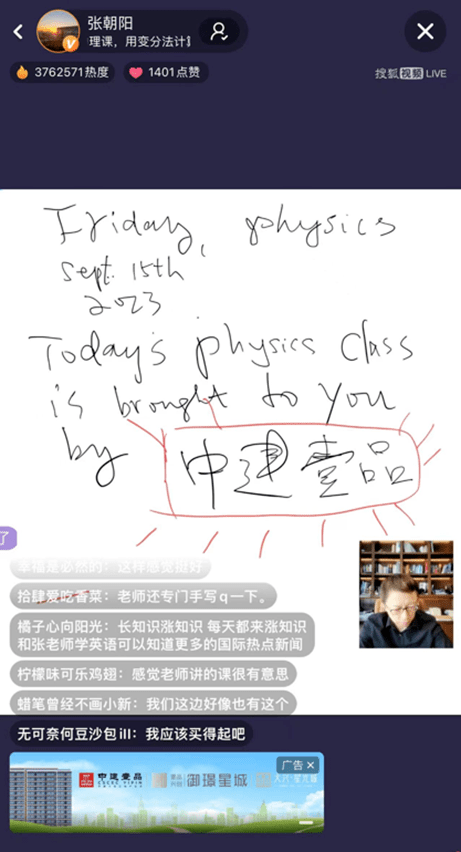 张朝阳
理课，用变分法计算
3762571热度
1401点赞
搜狐视频 LIVE
Friday, physics
Sept. 15th
2023
Today's physics class
is brought to you
by 中建壹品
了
幸福是必然的：这样感觉挺好
拾肆爱吃香菜：老师还专门手写q一下。
橘子心向阳光：长知识涨知识 每天都来涨知识
和张老师学英语可以知道更多的国际热点新闻
柠檬味可乐鸡翅：感觉老师讲的课很有意思
蜡笔曾经不画小新：我们这边好像也有这个
无可奈何豆沙包ill：我应该买得起吧
中建壹品
御璟星城
广告 ×